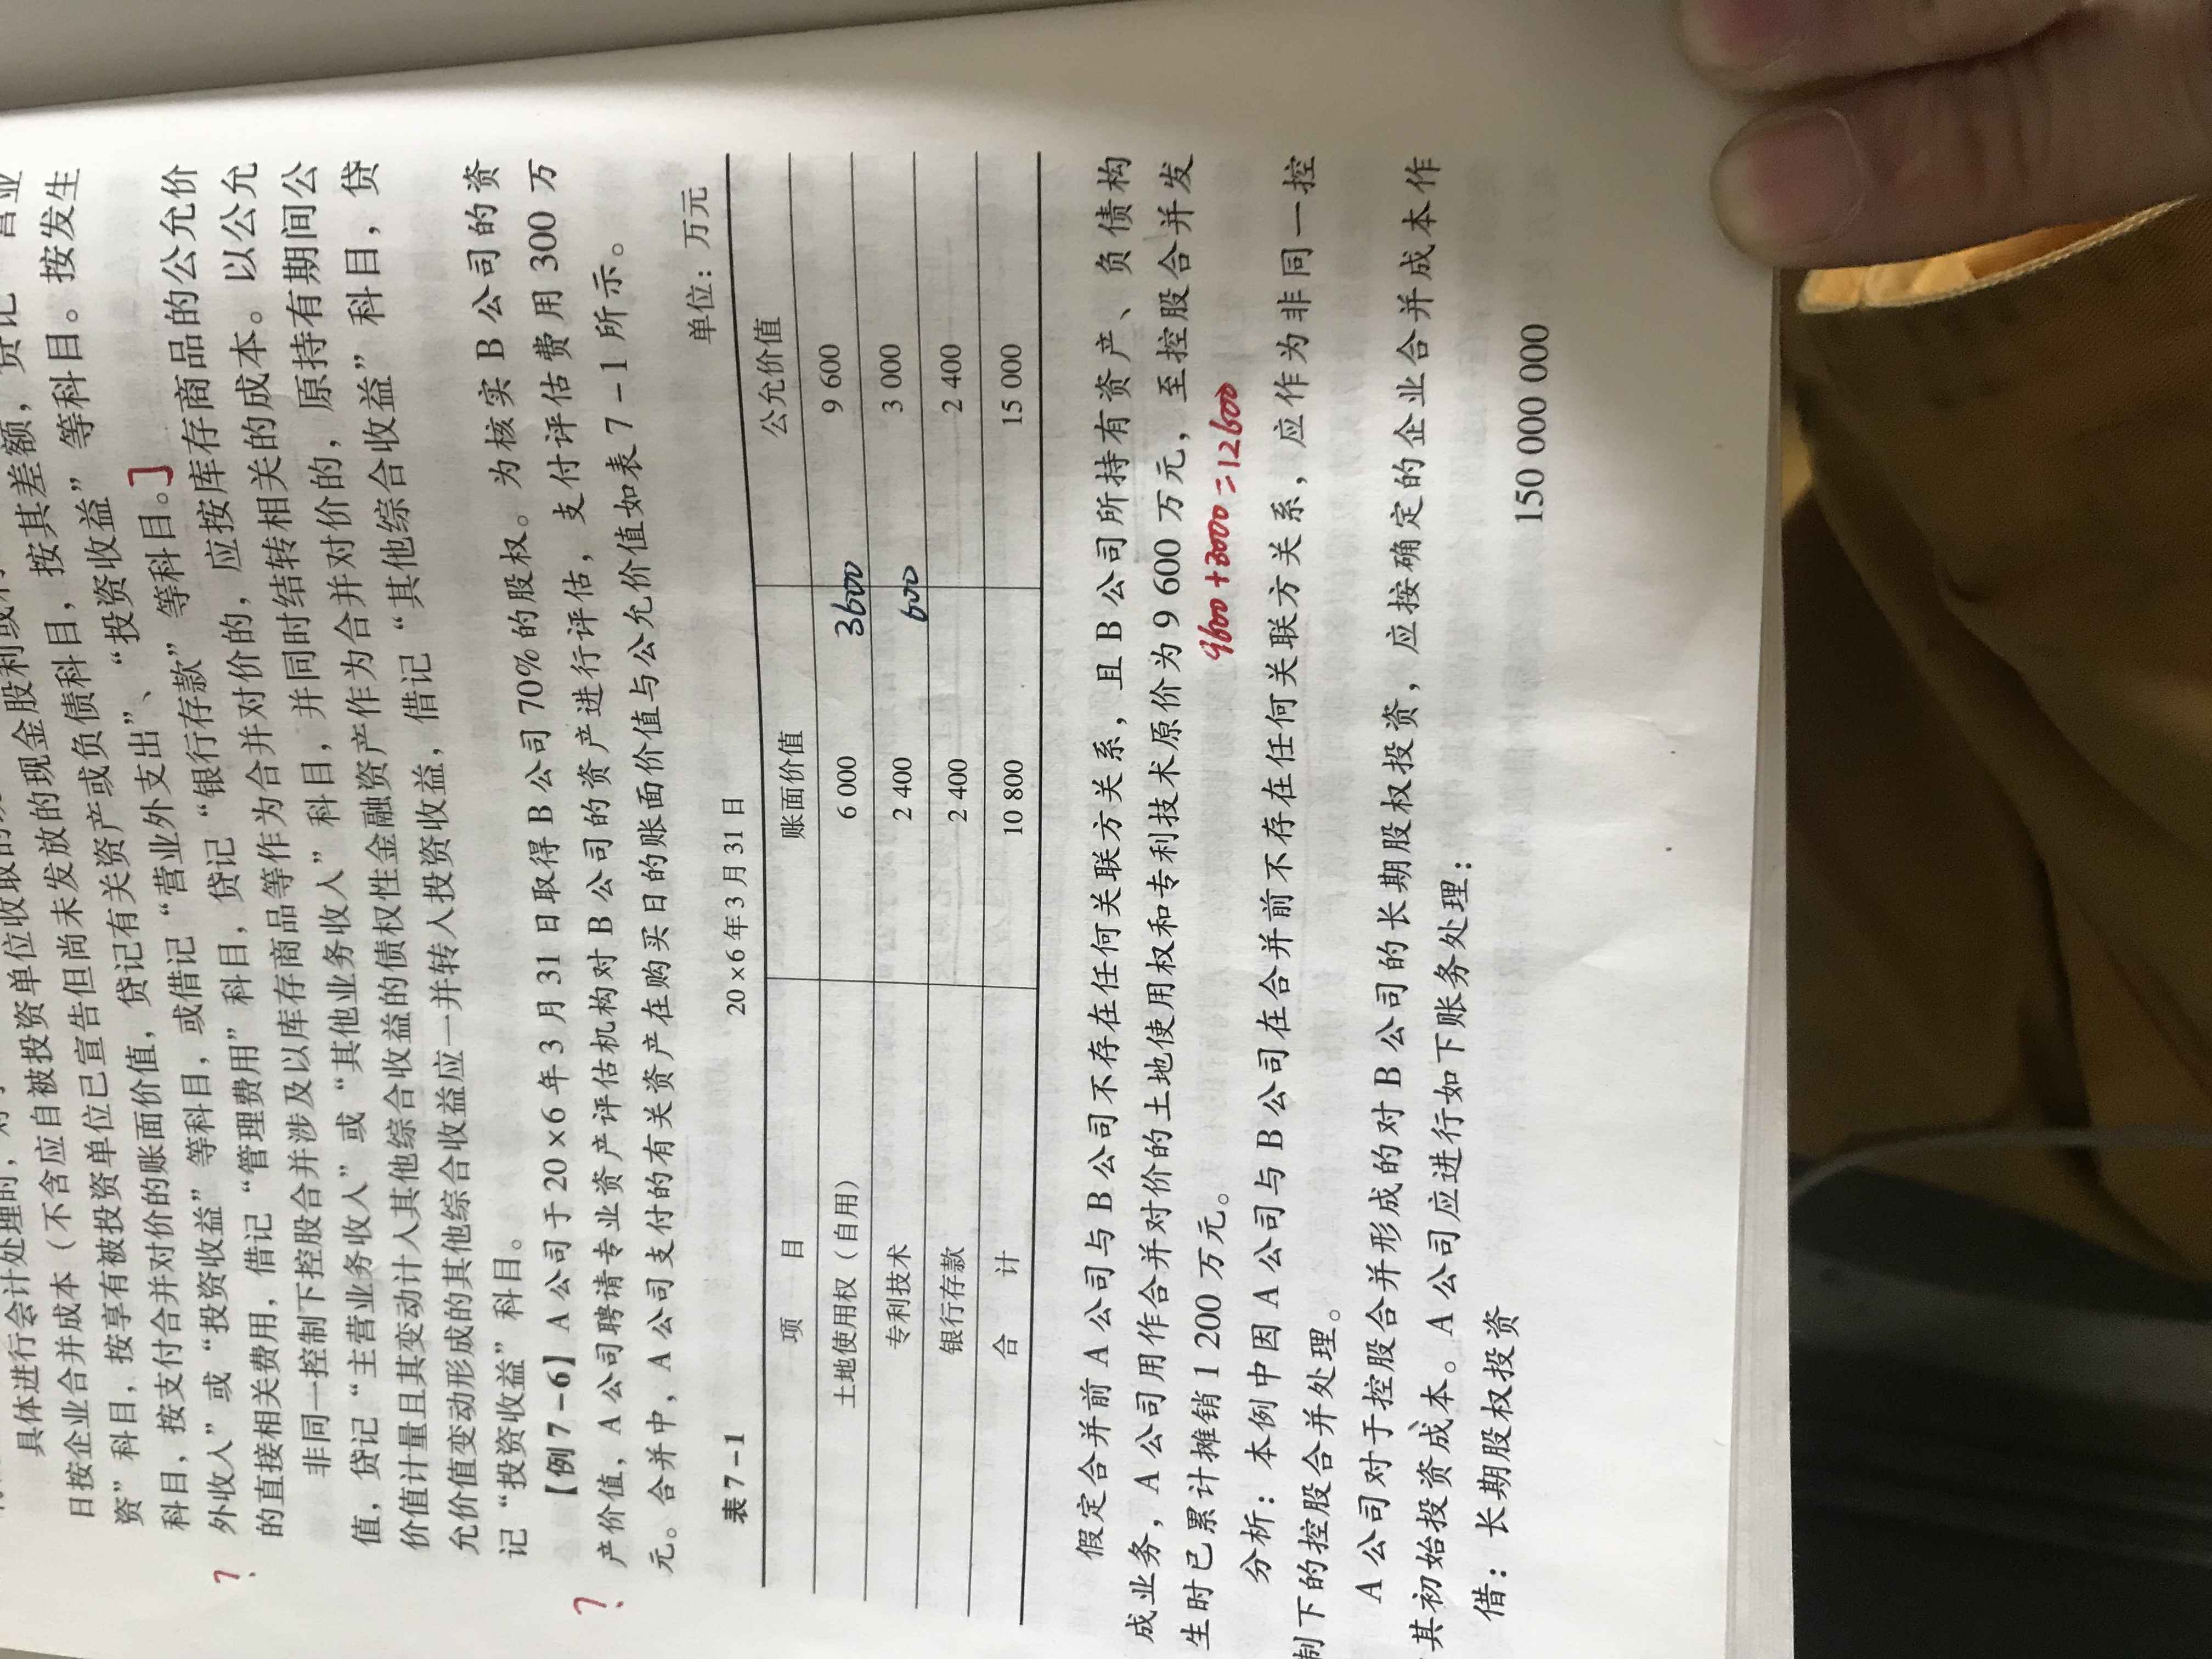 具体进行会计处理时，对于
日按企业合并成本（不含应自被投资单位收取的现金股利或利
资”科目，按享有被投资单位已宣告但尚未发放的现金股利或
科目，按支付合并对价的账面价值，贷记有关资产或负债科目，按其差额，贷记“营业
外收入”或“投资收益”等科目，或借记“营业外支出”、“投资收益”等科目。按发生
的直接相关费用，借记“管理费用”科目，贷记“银行存款”等科目。]
非同一控制下控股合并涉及以库存商品等作为合并对价的，应按库存商品的公允价
值，贷记“主营业务收入”或“其他业务收入”科目，并同时结转相关的成本。以公允
价值计量且其变动计入其他综合收益的债权性金融资产作为合并对价的，原持有期间公
允价值变动形成的其他综合收益应一并转入投资收益，借记“其他综合收益”科目，贷
记“投资收益”科目。
?
【例7－6】A公司于20×6年3月31日取得B公司70%的股权。为核实B公司的资
产价值，A公司聘请专业资产评估机构对B公司的资产进行评估，支付评估费用300万
元。合并中，A公司支付的有关资产在购买日的账面价值与公允价值如表7－1所示。
?
表7－1 20×6年3月31日 单位：万元
项 目 账面价值 公允价值
土地使用权（自用） 6 000 3600 9 600
专利技术 2 400 600 3 000
银行存款 2 400 2 400
合 计 10 800 15 000
假定合并前A公司与B公司不存在任何关联方关系，且B公司所持有资产、负债构
成业务，A公司用作合并对价的土地使用权和专利技术原价为9 600万元，至控股合并发
生时已累计摊销1 200万元。
9600+3000=12600
分析：本例中因A公司与B公司在合并前不存在任何关联方关系，应作为非同一控
制下的控股合并处理。
A公司对于控股合并形成的对B公司的长期股权投资，应按确定的企业合并成本作
其初始投资成本。A公司应进行如下账务处理：
借：长期股权投资 150 000 000